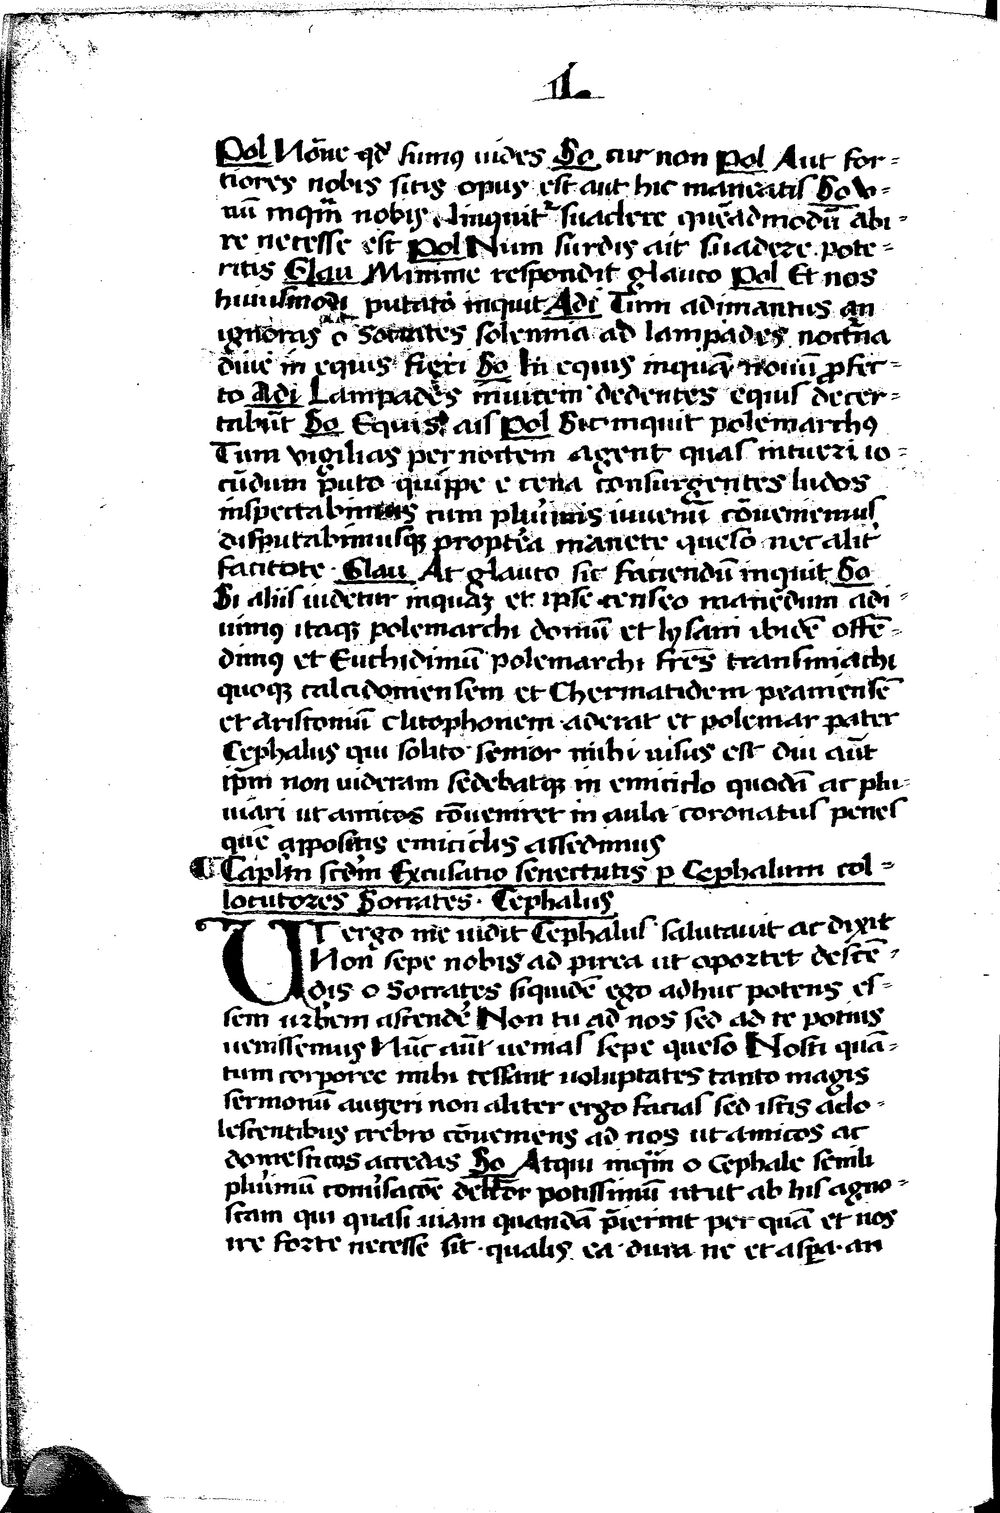 I.
Pol Nōne qđ sumꝯ uides So cur non Pol Aut for-
tiores nobis sitis opus est aut hic maneatis So V-
nū inqm̄ nobis relinquit᷑ suadere quēadmodū abi-
re necesse est Pol Num surdis ait suadere pote-
ritis Glau Minime respondit glauco Pol Et nos
huiusmodi putato inquit Adi Tum adimantus an
ignoras o Socrates solennia ad lampades noct᷑na
diue in equis fieri So In equis inquā nouū ꝓfer-
to Adi Lampades inuicem dedentes equis decer-
tabūt So Equis ais Pol Sic inquit polemarchꝯ
Tum vigilias per noctem agent quas intueri io-
cūdum puto quippe e cena consurgentes ludos
inspectabimus cum plurimis iuuenū cōueniemus
disputabimusqꝫ propterea manete queso nec alit᷑
facitote Glau At glauco sic faciendū inquit So
Si aliis uidetur inquaꝫ et ipse censeo manēdum adi-
uimꝯ itaqꝫ polemarchi domū et lysam ibidē offē-
dimꝯ et Euthidimū polemarchi fr̄es transimachi
quoqꝫ calcidoniensem et Chermatidem peaniensē
et aristoniū clitophonem aderat et polemar pater
Cephalus qui solito senior mihi uisus est diu aūt
ip̄m non uideram sedebatqꝫ in emiciclo quodā ac plu-
uiari ut amicos cōueniret in aula coronatus penes
quē appositis emiciclis assedimus
Cap̄lm scd̄m Excusatio senectutis ꝑ Cephalum col-
locutores Socrates Cephalus
UT ergo me uidit Cephalus salutauit ac dixit
Non sepe nobis ad pirea ut oportet descē-
dis o Socrates siquidē ego adhuc potens es-
sem urbem ascendē Non tu ad nos sed ad te potius
uenissemus Nūc aūt uenias sepe queso Nosti quā-
tum corporee mihi cessant uoluptates tanto magis
sermonū augeri non aliter ergo facias sed istis ado-
lescentibus crebro cōueniens ad nos ut amicos ac
domesticos accedas So Atqui inqm̄ o Cephale senili
plurimū conuersacōe delector potissimū utut ab his agno-
scam qui quasi uiam quandā p̄ierint per quā et nos
ire forte necesse sit qualis ea dura ne et asꝑa an